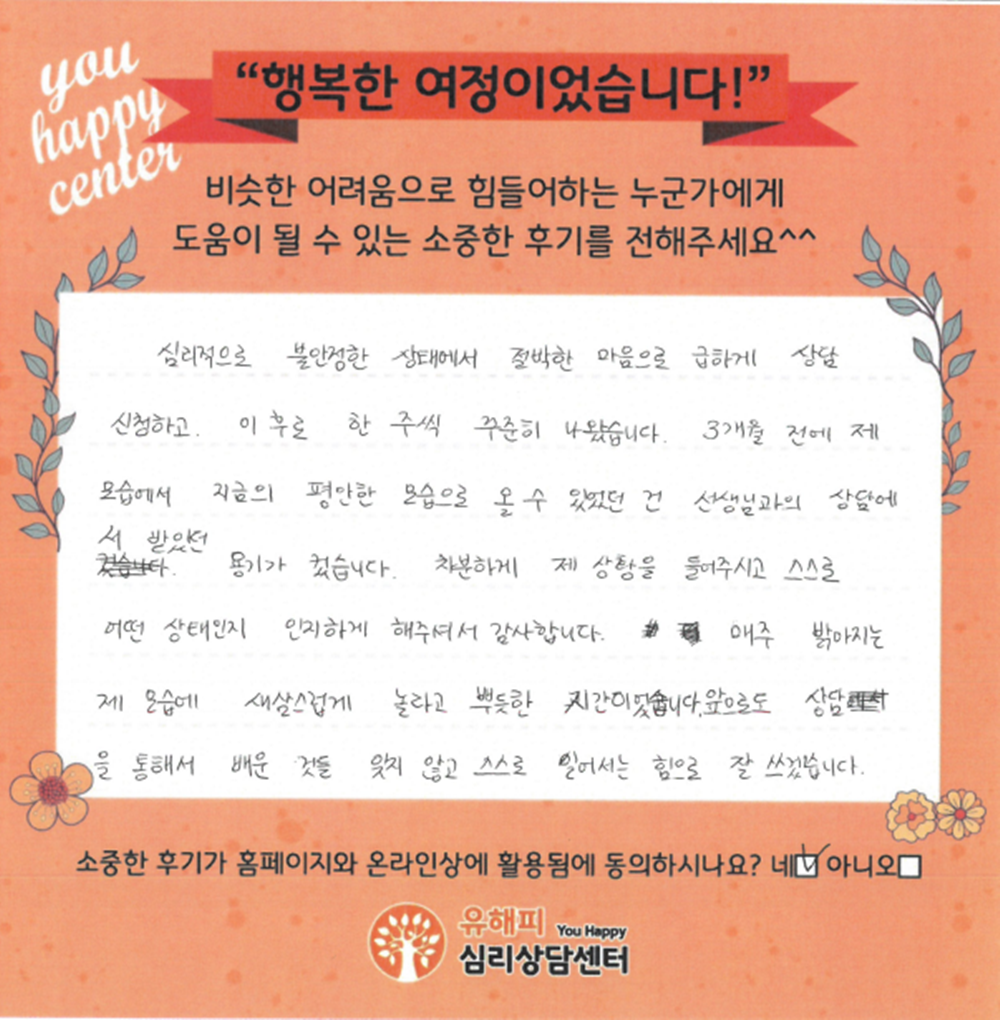 you
happy
center
“행복한 여정이었습니다!”
비슷한 어려움으로 힘들어하는 누군가에게
도움이 될 수 있는 소중한 후기를 전해주세요^^
심리적으로 불안정한 상태에서 절박한 마음으로 급하게 상담
신청하고. 이 후로 한 주씩 꾸준히 나왔습니다. 3개월 전에 제
모습에서 지금의 평안한 모습으로 올 수 있었던 건 선생님과의 상담에
서 받았던
용기가 컸습니다. 차분하게 제 상황을 들어주시고 스스로
어떤 상태인지 인지하게 해주셔서 감사합니다. 매주 밝아지는
제 모습에 새삼스럽게 놀라고 뿌듯한 시간이었습니다. 앞으로도 상담
을 통해서 배운 것들 잊지 않고 스스로 일어서는 힘으로 잘 쓰겠습니다.
소중한 후기가 홈페이지와 온라인상에 활용됨에 동의하시나요? 네☑ 아니오☐
유해피 You Happy
심리상담센터